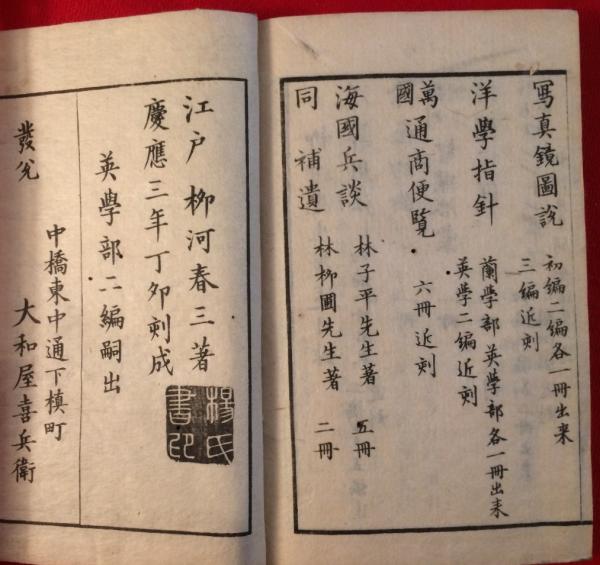 寫真鏡圖説
初編二編各一冊出来
三編近刻
洋學指針
蘭學部英學部各一冊出来
英學二編近刻
萬國通商便覧
六冊近刻
海國兵談
林子平先生著 五冊
同補遺
林柳圃先生著 二冊
江戸 柳河春三著
慶應三年丁卯刻成
英學部二編嗣出
楊氏書印
發兌
中橋東中通下槙町
大和屋喜兵衛